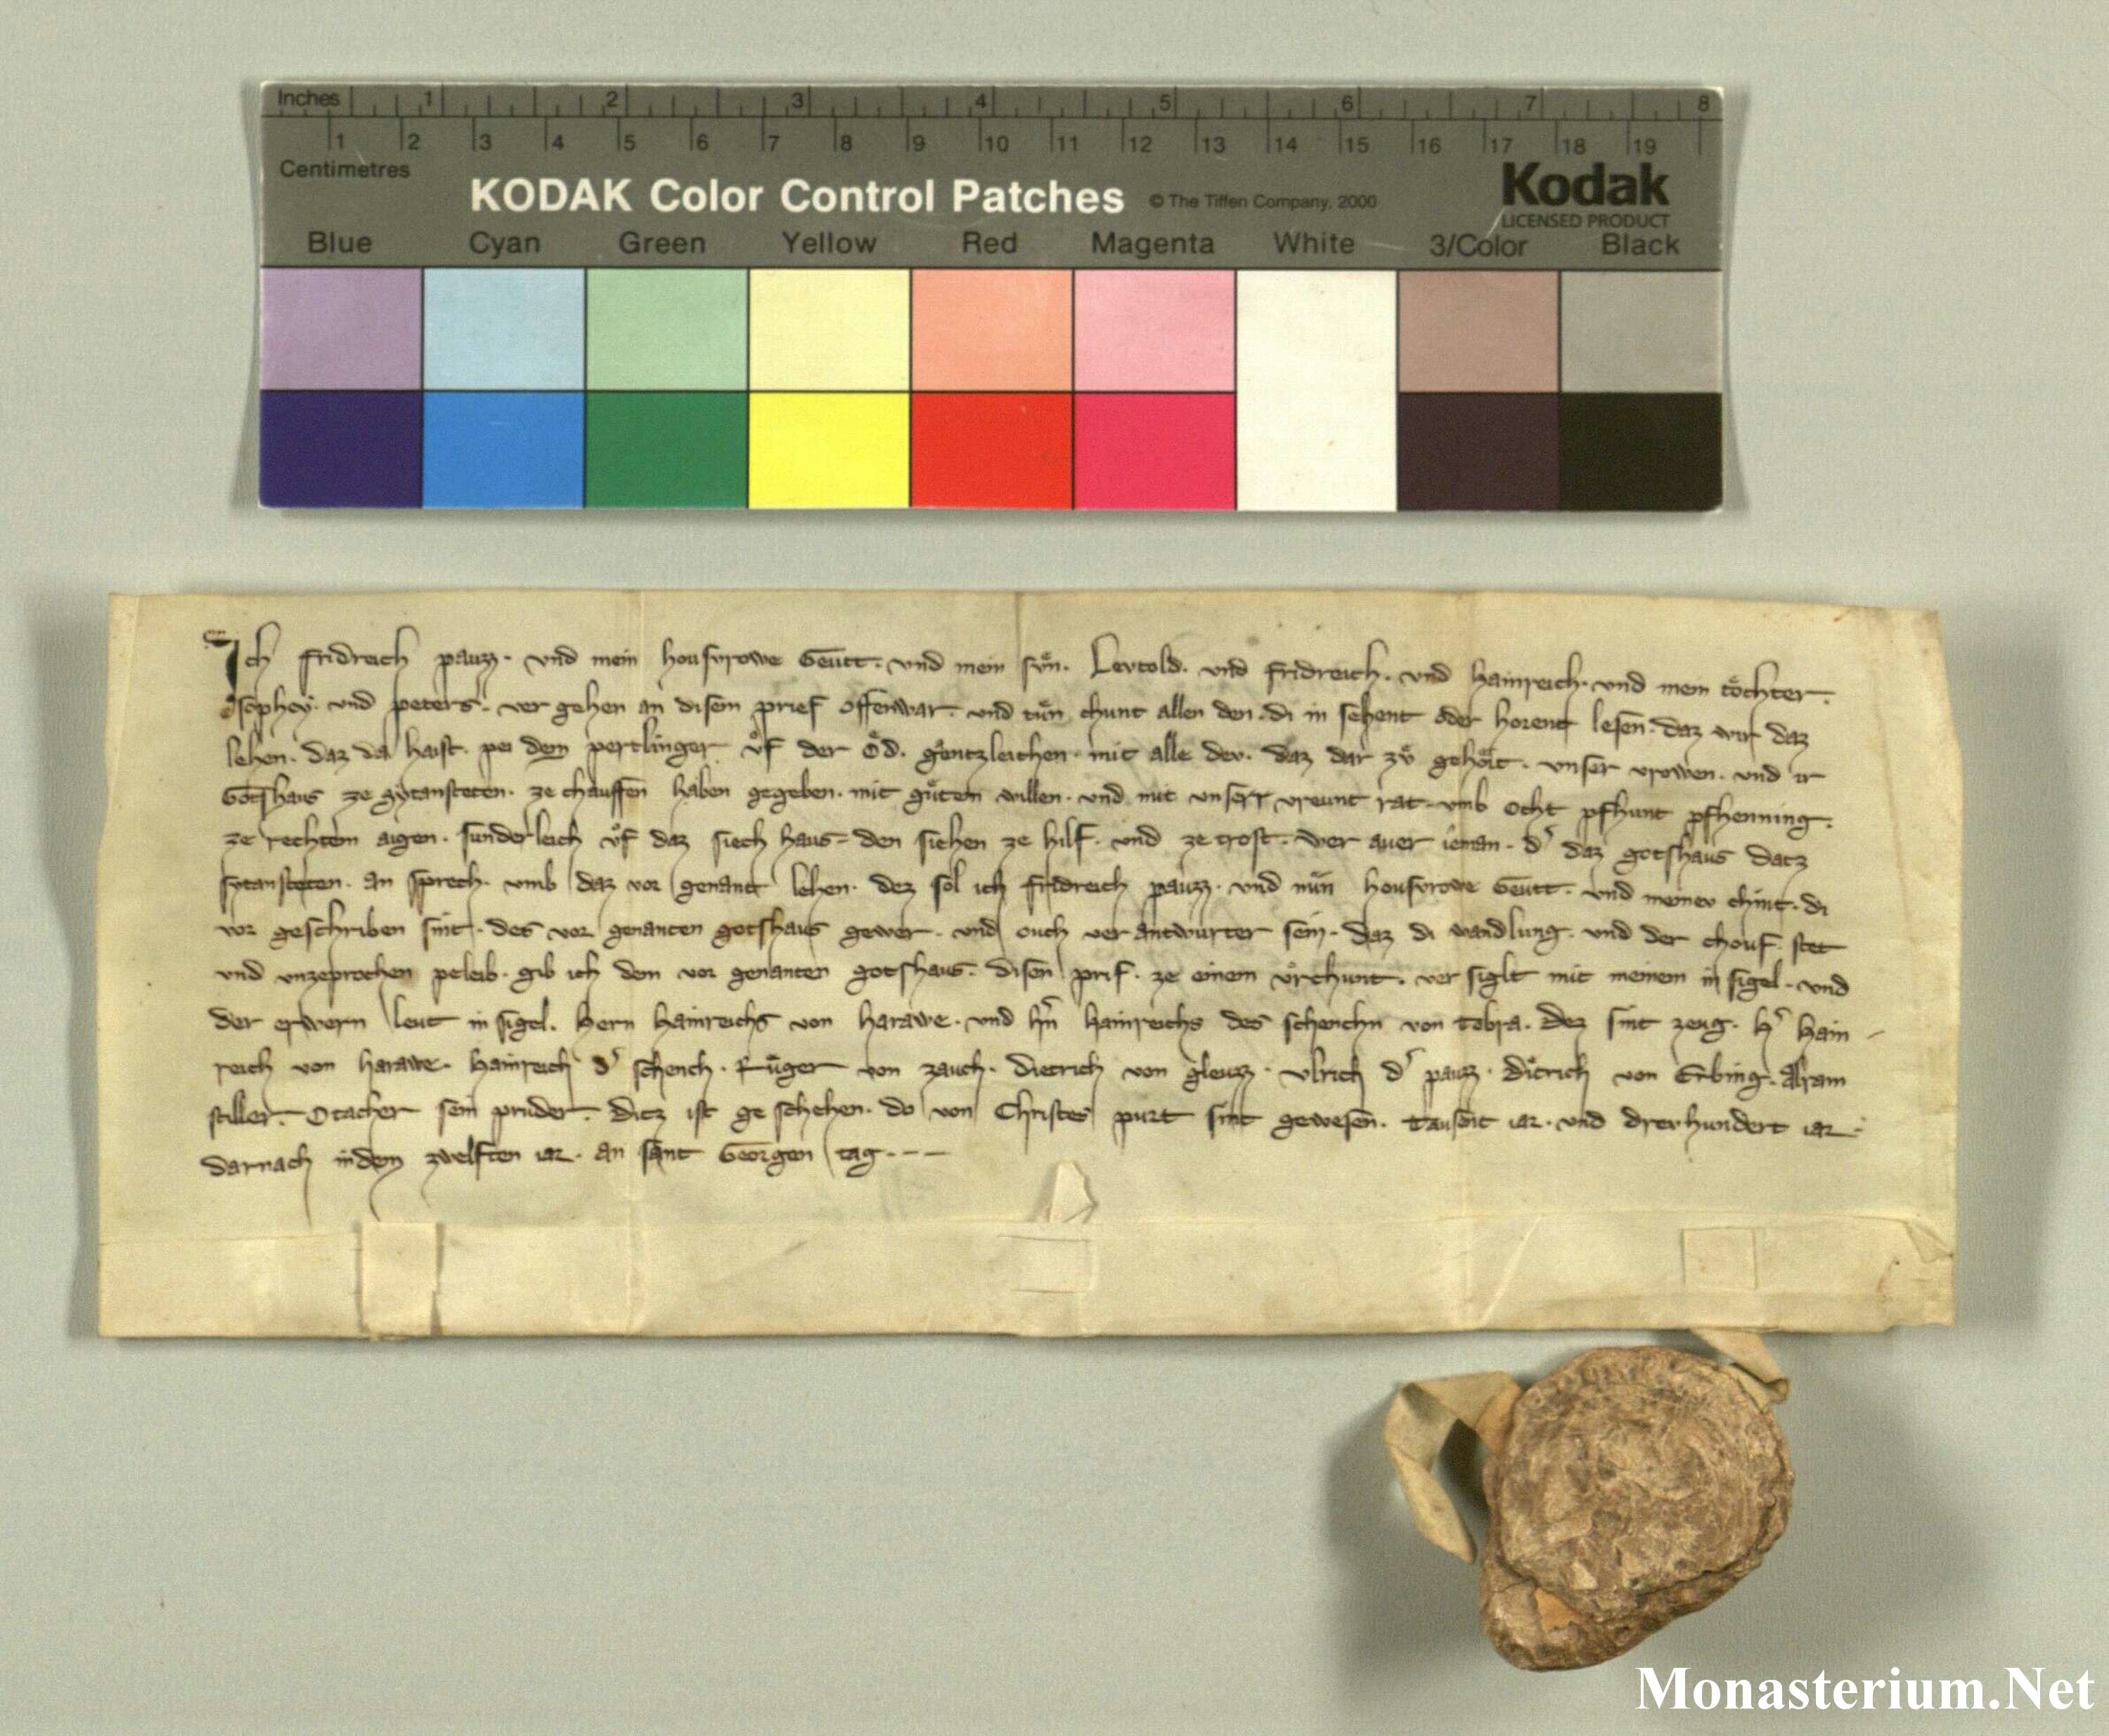 Inches 1 2 3 4 5 6 7 8
1 2 3 4 5 6 7 8 9 10 11 12 13 14 15 16 17 18 19
Centimetres
KODAK Color Control Patches © The Tiffen Company, 2000 Kodak
LICENSED PRODUCT
Blue Cyan Green Yellow Red Magenta White 3/Color Black
Ich fridreich pauzz. vnd mein housvrowe Geutt. vnd mein sün. Levtold. vnd fridreich. vnd hainreich. vnd mein töchter.
sophey. vnd peters. ver gehen an disem prief offenwar. vnd tün chunt allen den. di in sehent oder horent lesen. daz wir daz
lehen. daz da haist. pei dem pertlinger vf der Öd. gentzleichen. mit alle dev. daz dar zů gehört. vnser vrowen. vnd ir
Gotshaus ze sytansteten. ze chauffen haben gegeben. mit gůtem willen. vnd mit vnserr vreunt rat. vmb Ocht pfhunt pfhenning.
ze rechtem aigen. sunderleich vf daz siech haus. den siehen ze hilf. vnd ze trost. Wer auer ieman. d' daz gotshaus datz
sytansteten. an sprech. vmb daz vor genant lehen. dez sol ich fridreich pauzz. vnd mein housvrowe Geutt. vnd meinev chint. di
vor geschriben sint. des vor genanten gotshaus gewer. vnd ouch ver antwurter sein. daz di wandlung. vnd der chouf. stet
vnd vnzeprochen peleib. gib ich dem vor genanten gotshaus. disen prif. ze einem vrchunt. ver siglt mit meinem in sigel. vnd
der erwern leut in sigel. hern hainreichs von harawe. vnd hn hainreichs des schenchn von tobra. dez sint zeug. h' hain
reich von harawe. hainreich d' schench. Rüger von zauch. dietrich von gleuzz. vlrich d' pauzz. ditrich von Erbing. Alram
stiller. Otacher sein pruder. ditz ist ge schehen. do von Christes purt sint gewesen. tausent iar. vnd drevhundert iar.
darnach in dem zwelften iar. an sant Georgen tag.
Monasterium.Net